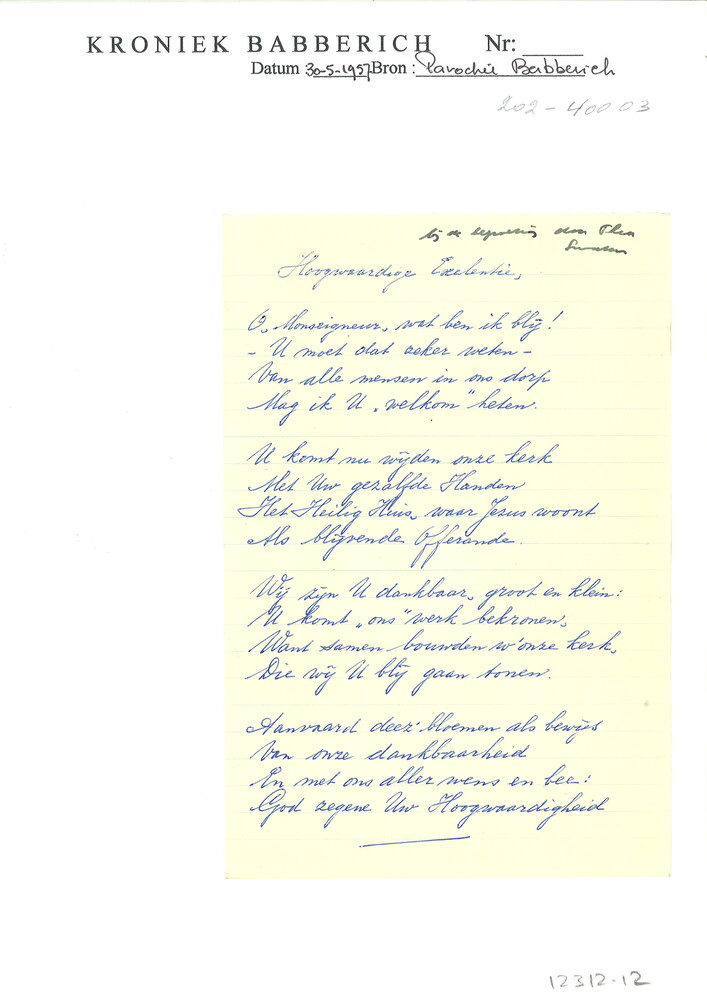 KRONIEK BABBERICH Nr:
Datum 30-5-1957 Bron: Parochie Babberich
202-40003
bij de door Thea
Hoogwaardige Exelentie,
O, Monseigneur, wat ben ik blij!
- U moet dat zeker weten -
Van alle mensen in ons dorp
Mag ik U „welkom" heten.
U komt nu wijden onze kerk
Met Uw gezalfde Handen
Het Heilig Huis, waar Jezus woont
Als blijvende Offerande.
Wij zijn U dankbaar, groot en klein:
U komt „ons" werk bekronen,
Want samen bouwden w'onze kerk,
Die wij U blij gaan tonen.
Aanvaard deez' bloemen als bewijs
Van onze dankbaarheid
En met ons aller wens en bee:
God zegene Uw Hoogwaardigheid
12312-12